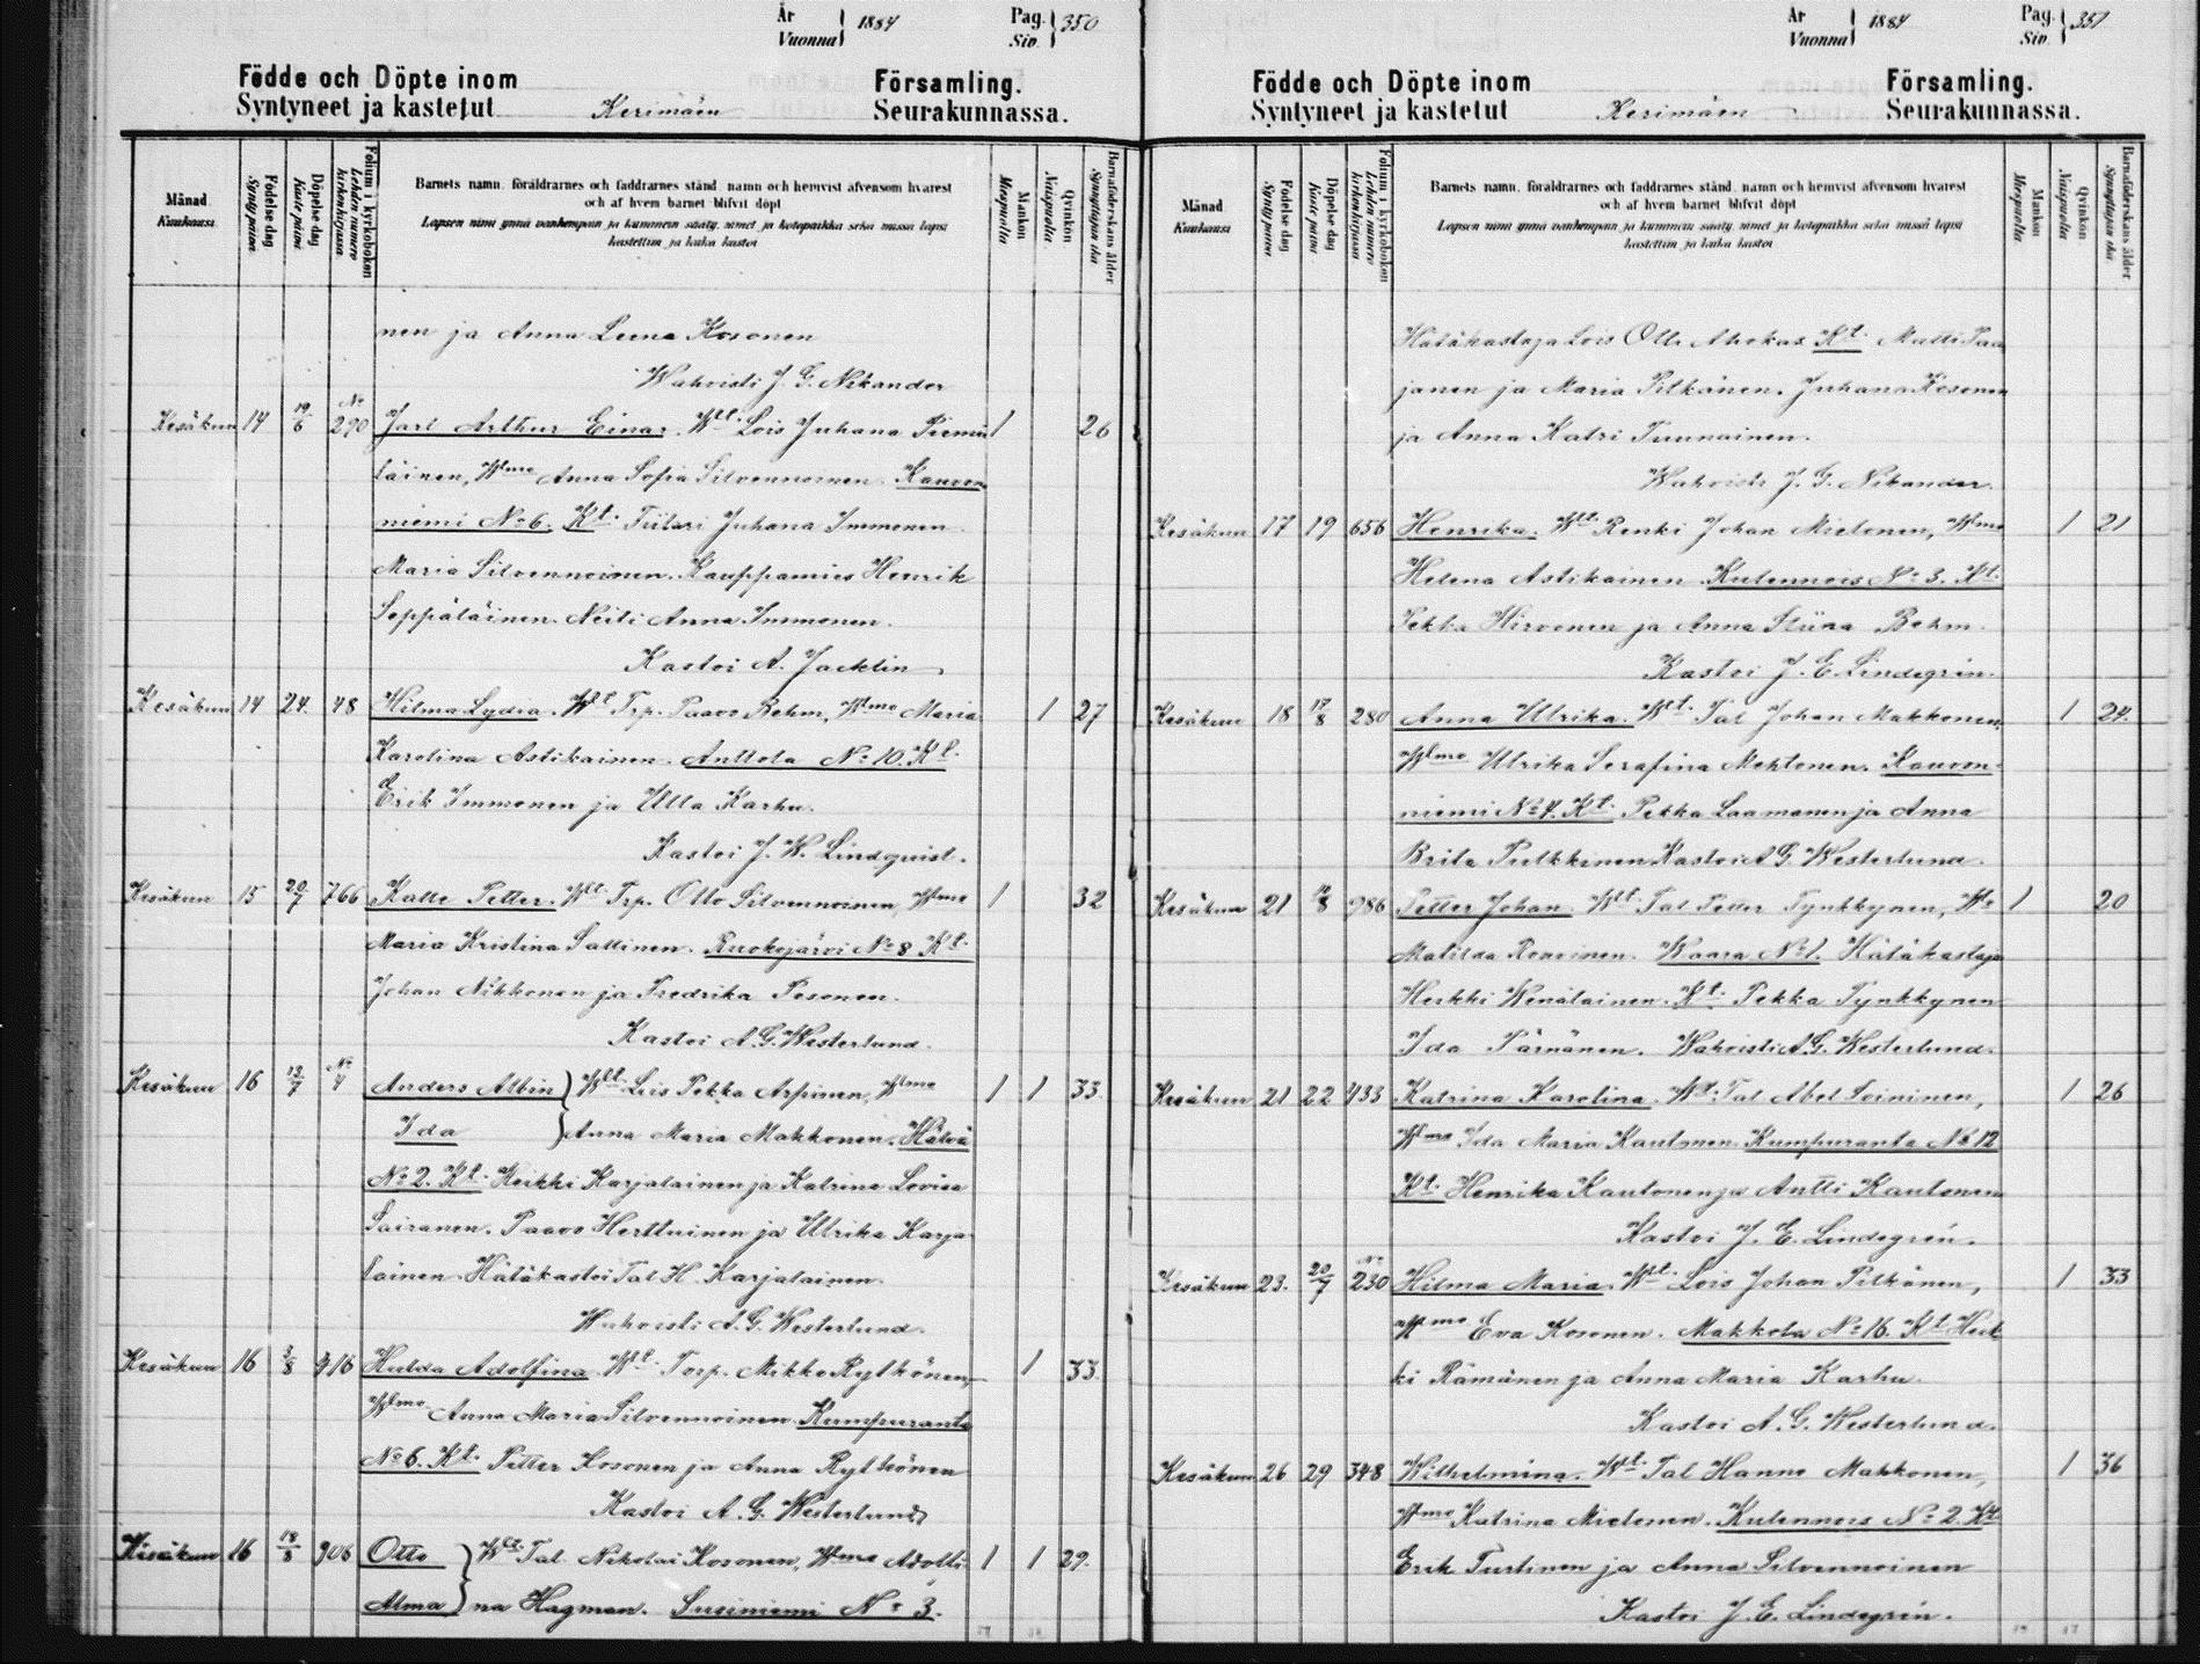 År
Vuonna
1884
Pag.
Siv.
350
Födde och Döpte inom
Syntyneet ja kastetut
Kerimäen
Församling.
Seurakunnassa.
Månad
Kuukausi
Födelse dag
Synty päivä
Döpelse dag
Kaste päivä
Folium i kyrkoboken
Lehden numero
kirkonkirjassa
Barnets namn, föräldrarnes och faddrarnes stånd, namn och hemvist äfvensom hvarest
och af hvem barnet blifvit döpt
Lapsen nimi ynnä vanhempain ja kummein sääty, nimet ja kotopaikka sekä missä lapsi
kastettiin ja kuka kastoi
Mankön
Miespuolta
Qvinkön
Naispuolta
Barnaföderskans ålder
Synnyttäjän ikä
nen ja Anna Leena Kosonen
Wahvisti J. G. Nikander
Kesäkuu 14 19/6 No 290 Jarl Arthur Einar. Wtt. Lois Juhana Piemä 1 26
läinen, Wtmo Anna Sofia Silvennoinen. Kauvon
niemi No 6. Kt. Tiitari Juhana Immonen
Maria Silvennoinen. Kauppamies Henrik
Seppäläinen. Neiti Anna Immonen.
Kastoi A. Jacklin
Kesäkuu 14 24. 48 Hilma Lydia. Wtt Trp. Paavo Behm, Wtmo Maria 1 27
Karolina Astikainen. Anttola No 10. Kt.
Erik Immonen ja Ulla Karhu.
Kastoi J. W. Lindqvist.
Kesäkuu 15 20/7 766 Kalle Petter. Wtt. Trp. Otto Silvennoinen, Wtmo 1 32
Maria Kristina Sattinen. Ruokojärvi No 8 Kt.
Johan Nikkonen ja Fredrika Pesonen.
Kastoi A. G. Westerlund.
Kesäkuu 16 13/7 No 4 Anders Albin } Wtt. Lois Pekka Arpinen, Wtmo 1 1 33.
Ida } Anna Maria Makkonen. Hälvä
No 2. Kt. Heikki Karjalainen ja Katrina Lovisa
Sairanen. Paavo Herttuinen ja Ulrika Karja
lainen. Hätäkastoi Tal. H. Karjalainen.
Wahvisti A. G. Westerlund.
Kesäkuu 16 3/8 416 Hulda Adolfina. Wtt. Torp. Mikko Rytkönen, 1 33.
Wtmo Anna Maria Silvennoinen. Kumpuranta
No 6. Kt. Petter Kosonen ja Anna Rytkönen
Kastoi A. G. Westerlund
Kesäkuu 16 18/8 906 Otto } Wtt. Tal. Nikolai Kosonen, Wtmo Adolfi- 1 1 29.
Alma } na Hagman. Susiniemi No 3.
År
Vuonna
1884
Pag.
Siv.
351
Födde och Döpte inom
Syntyneet ja kastetut
Kerimäen
Församling.
Seurakunnassa.
Månad
Kuukausi
Födelse dag
Synty päivä
Döpelse dag
Kaste päivä
Folium i kyrkoboken
Lehden numero
kirkonkirjassa
Barnets namn, föräldrarnes och faddrarnes stånd, namn och hemvist äfvensom hvarest
och af hvem barnet blifvit döpt
Lapsen nimi ynnä vanhempain ja kummein sääty, nimet ja kotopaikka sekä missä lapsi
kastettiin ja kuka kastoi
Mankön
Miespuolta
Qvinkön
Naispuolta
Barnaföderskans ålder
Synnyttäjän ikä
Hätäkastaja Lois Olli Ahokas Kt. Matti Paa
janen ja Maria Pitkänen. Juhana Kosonen
ja Anna Katri Tuunainen.
Wahvisti J. G. Nikander.
Kesäkuu 17 19 656 Henrika. Wtt. Renki Johan Mielonen, Wtmo 1 21
Helena Astikainen. Kulennois No 3. Kt.
Pekka Hirvonen ja Anna Stiina Behm.
Kastoi J. E. Lindegrén.
Kesäkuu 18 17/8 280 Anna Ulrika. Wtt. Tal Johan Makkonen, 1 24.
Wtmo Ulrika Serafina Mehtonen. Kauvon-
niemi No 4. Kt. Pekka Laamanen ja Anna
Brita Pulkkinen Kastoi A G. Westerlund.
Kesäkuu 21 10/8 986 Petter Johan. Wtt. Tal Petter Tynkkynen, Wo 1 20
Matilda Rouvinen. Waara No 1. Hätäkastaja
Heikki Wenäläinen. Kt. Pekka Tynkkynen
Ida Pärnänen. Wahvisti A. G. Westerlund.
Kesäkuu 21 22 433 Katrina Karolina. Wtt. Tal Abel Soininen, 1 26
Wtmo Ida Maria Kautonen. Kumpuranta No 12
Kt. Henrika Kautonen ja Antti Kautonen
Kastoi J. E. Lindegrén.
Kesäkuu 23. 20/7 No 230 Hilma Maria. Wtt. Lois Johan Pitkänen, 1 33
Wtmo Eva Kosonen. Makkola No 16. Kt Heik
ki Rämänen ja Anna Maria Karhu.
Kastoi A. G. Westerlund.
Kesäkuu 26 29 348 Wilhelmina. Wtt. Tal Hanno Makkonen, 1 36
Wtmo Katrina Mielonen. Kulennois No 2. Kt.
Erik Turtinen ja Anna Silvennoinen
Kastoi J. E. Lindegrén.